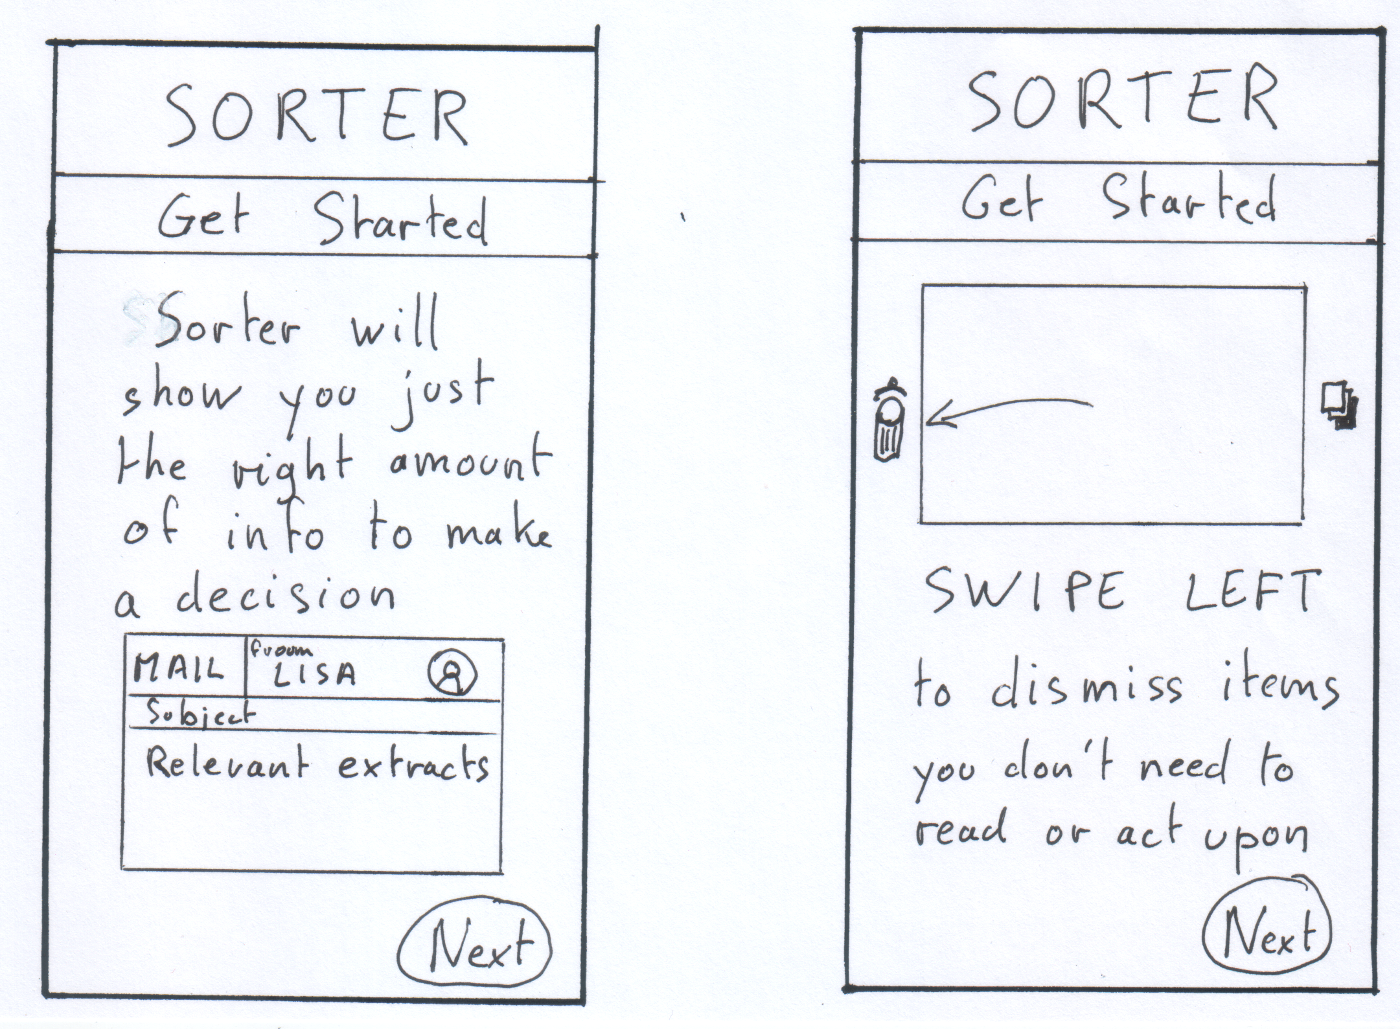 SORTER
Get Started
Sorter will
show you just
the right amount
of info to make
a decision
MAIL
from
LISA
Subject
Relevant extracts
Next
SORTER
Get Started
SWIPE LEFT
to dismiss items
you don't need to
read or act upon
Next